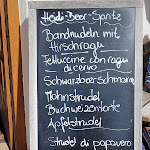 Heidi-Beer-Spritz
Bandnudeln mit
Hirschragu
Fettuccine con ragu
di cervo
Schwarzbeerschmarrn
Mohnstrudel
Buchweizentorte
Apfelstrudel
Strudel di papavero